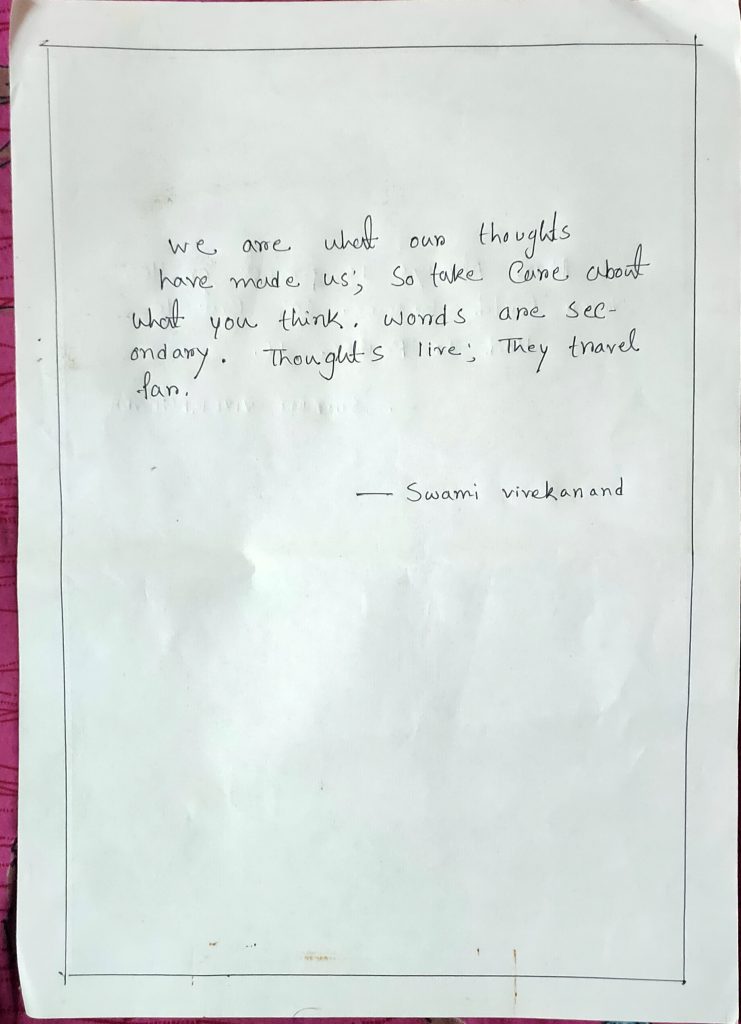 we are what our thoughts
have made us; So take Care about
what you think. words are sec-
ondary. Thoughts live; They travel
far.
— Swami vivekanand